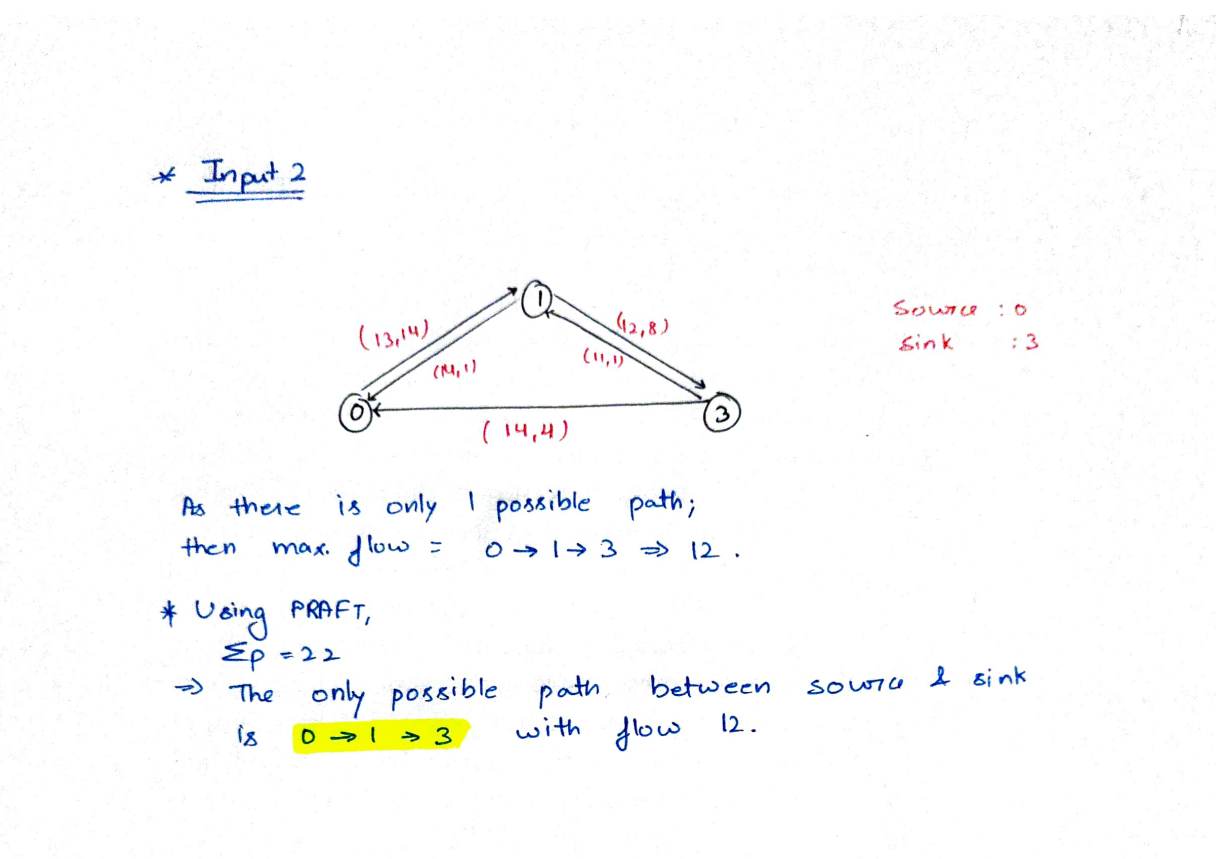 * Input 2
Source : 0
Sink : 3
1
(13,14)
(12,8)
(14,1)
(11,1)
0
3
(14,4)
As there is only 1 possible path;
then max. flow = 0 → 1 → 3 ⇒ 12.
* Using PRAFT,
Σp = 22
⇒ The only possible path between source & sink
is 0 → 1 → 3 with flow 12.